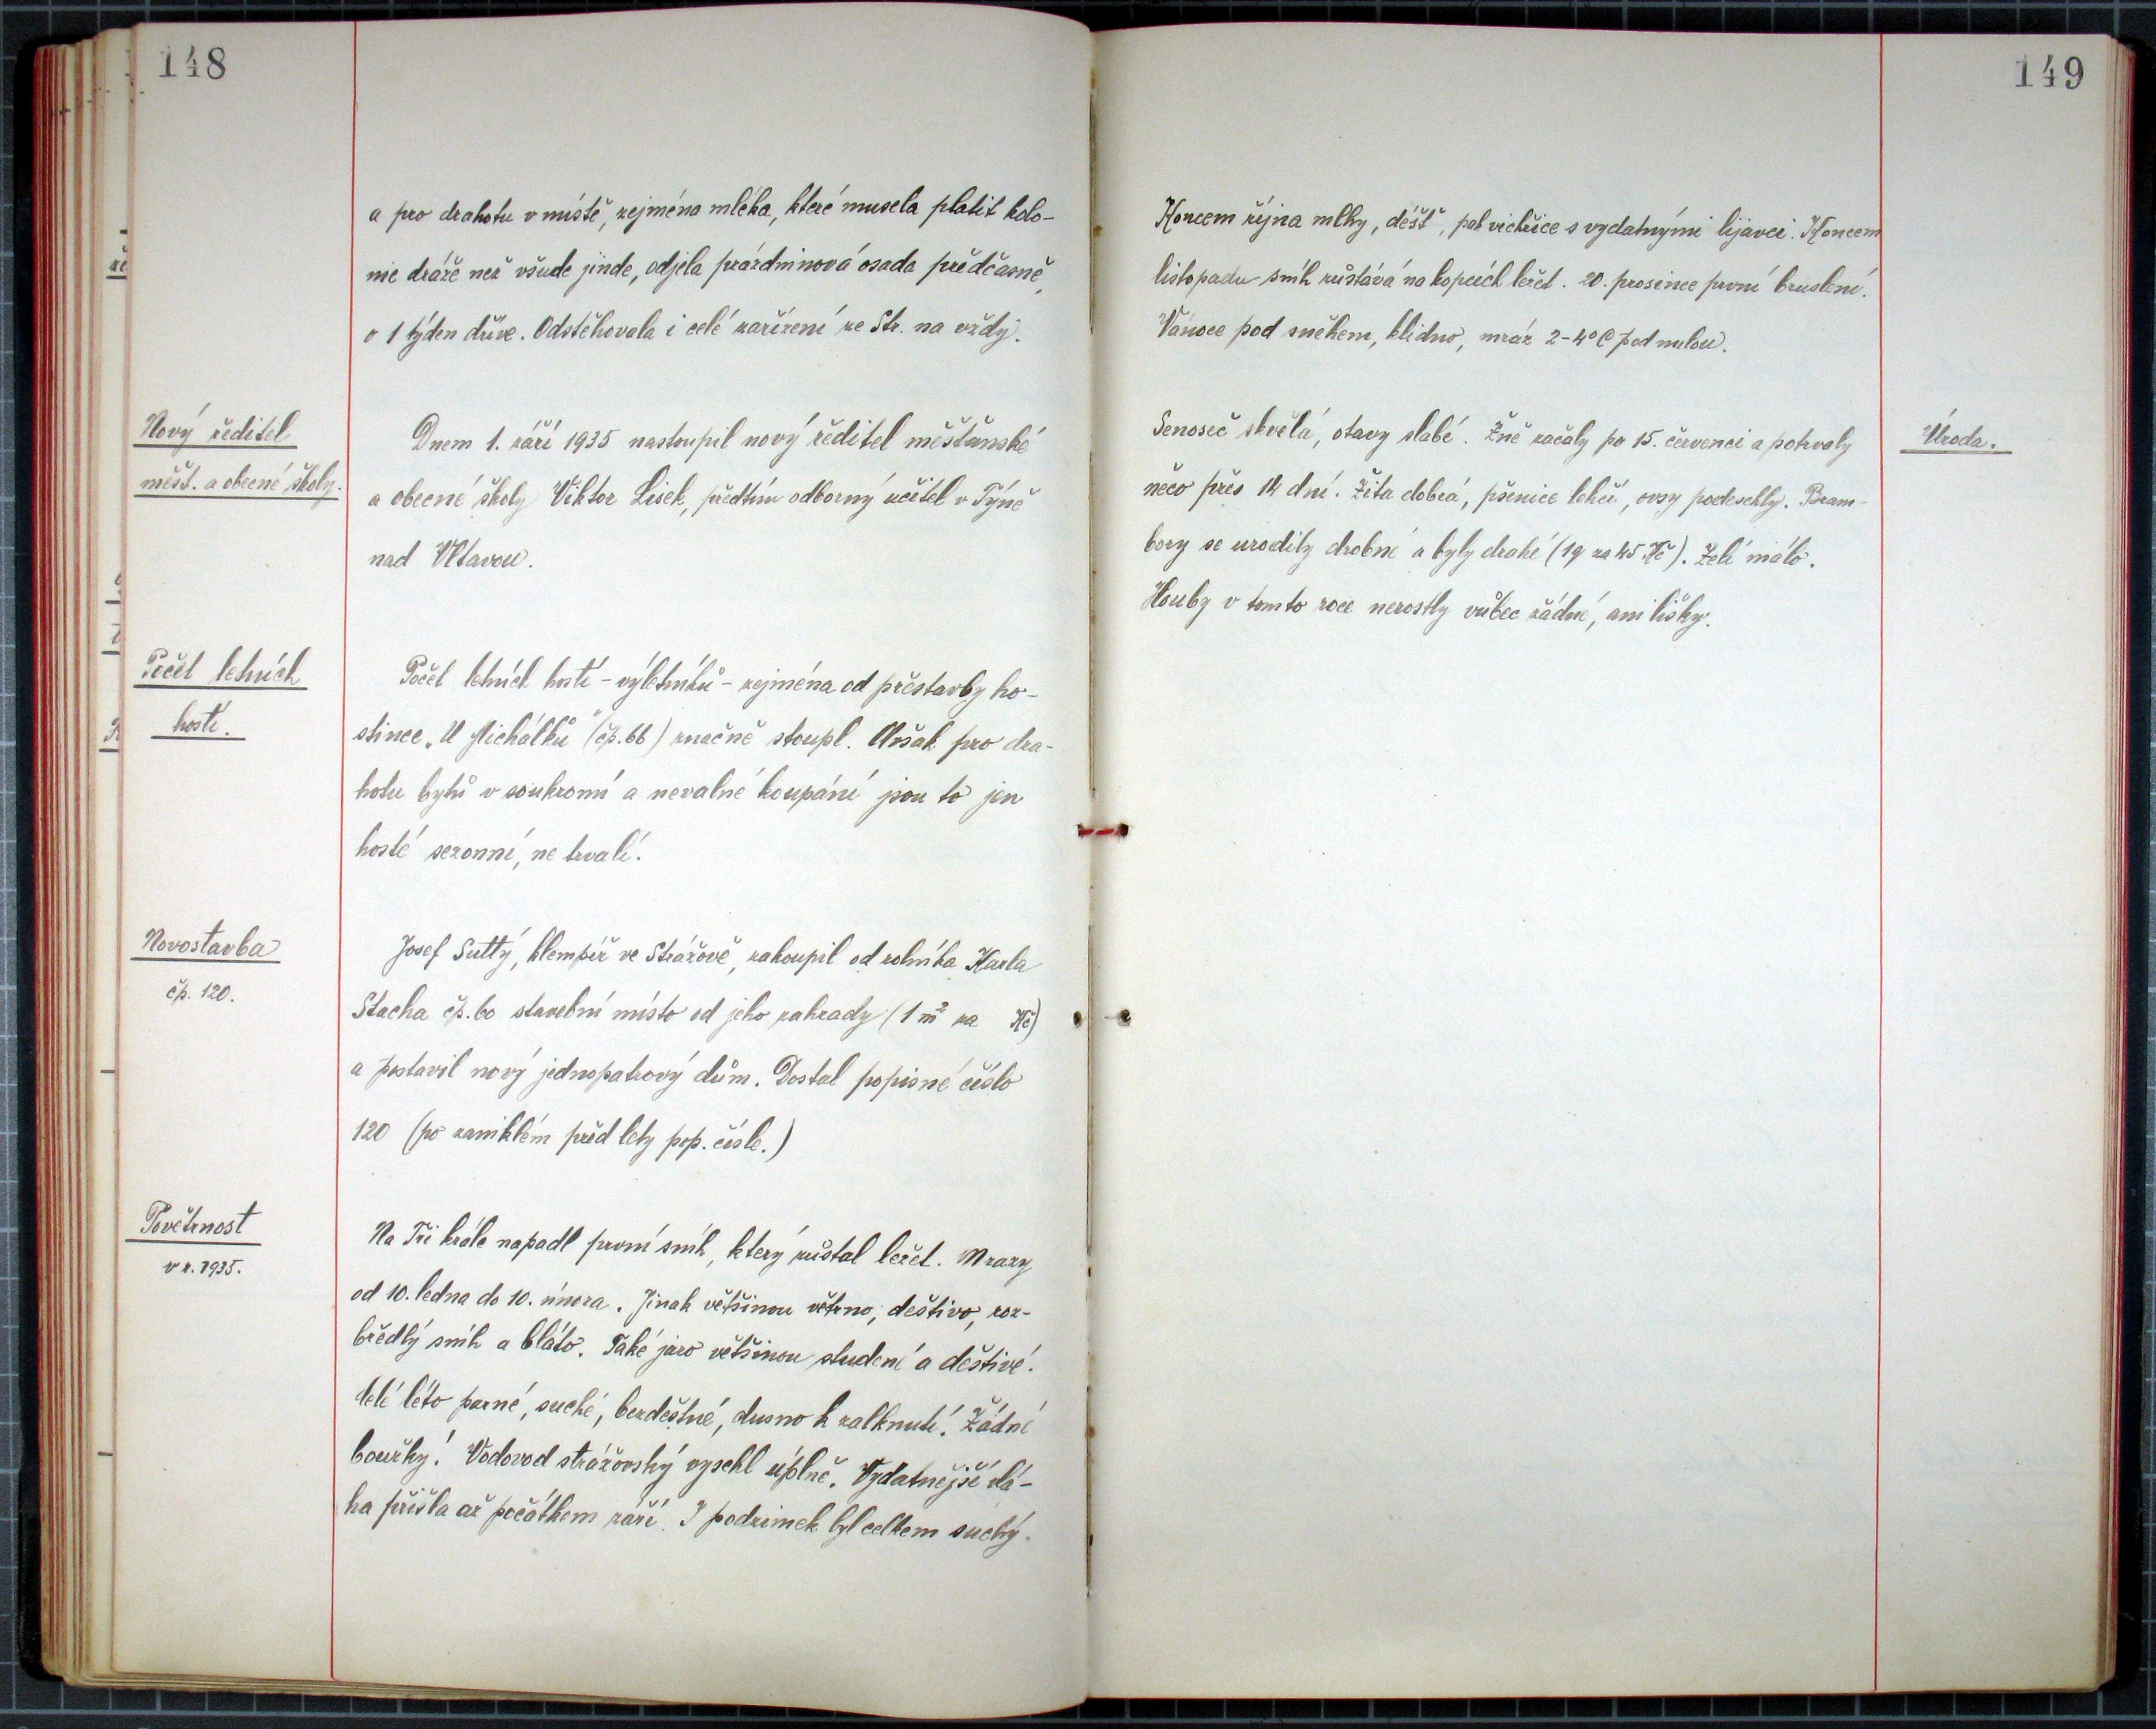 148
a pro drahotu v místě, zejména mléka, které musela platit kolo-
nie dráže než všude jinde, odjela prázdninová osada předčasně,
o 1 týden dříve. Odstěhovala i celé zařízení ze Str. na vždy.
Nový ředitel
měšt. a obecné školy.
Dnem 1. září 1935 nastoupil nový ředitel měšťanské
a obecné školy Viktor Lisek, předtím odborný učitel v Týně
nad Vltavou.
Počet letních
hostí.
Počet letních hostí - výletníků - zejména od přestavby ho-
stince „U Michálků" (čp. 66) značně stoupl. Avšak pro dra-
hotu bytů v soukromí a nevalné koupání jsou to jen
hosté sezonní, ne trvalí.
Novostavba
čp. 120.
Josef Suttý, klempíř ve Strážově, zakoupil od rolníka Karla
Stacha čp. 60 stavební místo od jeho zahrady (1 m² za Kč)
a postavil nový jednopatrový dům. Dostal popisné číslo
120 (po zaniklém před lety pop. čísle.)
Povětrnost
v r. 1935.
Na Tři krále napadl první sníh, který zůstal ležet. Mrazy
od 10. ledna do 10. února. Jinak většinou větrno, deštivo, roz-
bředlý sníh a bláto. Také jaro většinou studené a deštivé.
Celé léto parné, suché, bezdeštné, dusno k zalknutí. Žádné
bouřky! Vodovod strážovský vyschl úplně. Vydatnější vlá-
ha přišla až počátkem září. I podzimek byl celkem suchý.
149
Koncem října mlhy, déšť, pak vichřice s vydatnými lijavci. Koncem
listopadu sníh zůstává na kopcích ležet. 20. prosince první bruslení.
Vánoce pod sněhem, klidno, mráz 2-4° C pod nulou.
Úroda.
Senoseč skvělá, otavy slabé. Žně začaly po 15. červenci a potrvaly
něco přes 14 dní. Žita dobrá, pšenice lehčí, ovsy podeschly. Bram-
bory se urodily drobné a byly drahé (1q za 45 Kč). Zelí málo.
Houby v tomto roce nerostly vůbec žádné, ani lišky.